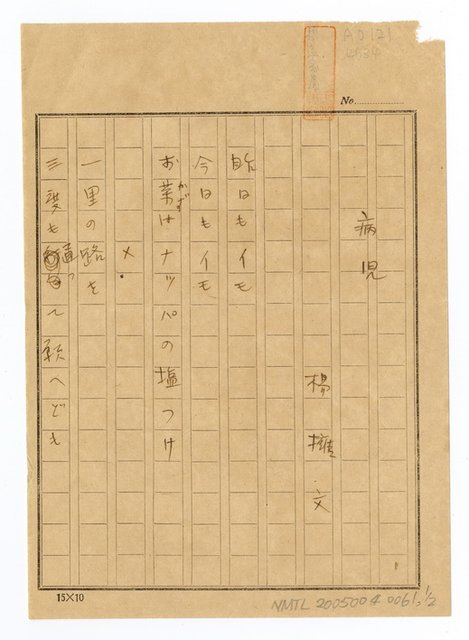 AD121
No.
病児
楊
昨日もイモ
今日もイモ
お菜はナッパの塩つけ
かず
×
一里の路を
三度も
ど も
15×10
NMTL 2005004 0061. 1/2